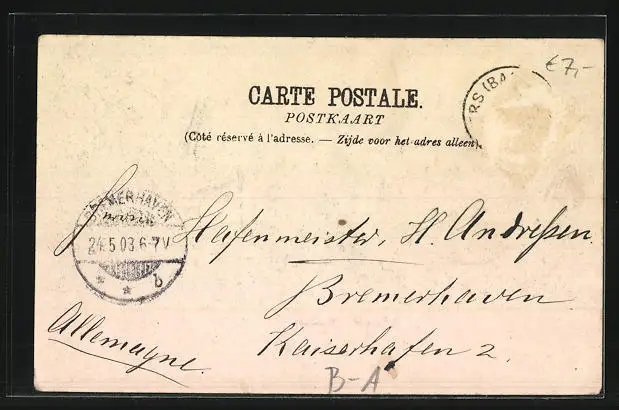 €7,-
CARTE POSTALE.
POSTKAART
(Côté réservé à l'adresse. — Zijde voor het adres alleen)
RS (BA
BREMERHAVEN
24.5.03.6-7V
* * b
Hafenmeister, H. Andreßen.
Bremerhaven
Kaiserhafen 2.
Allemagne.
B-A